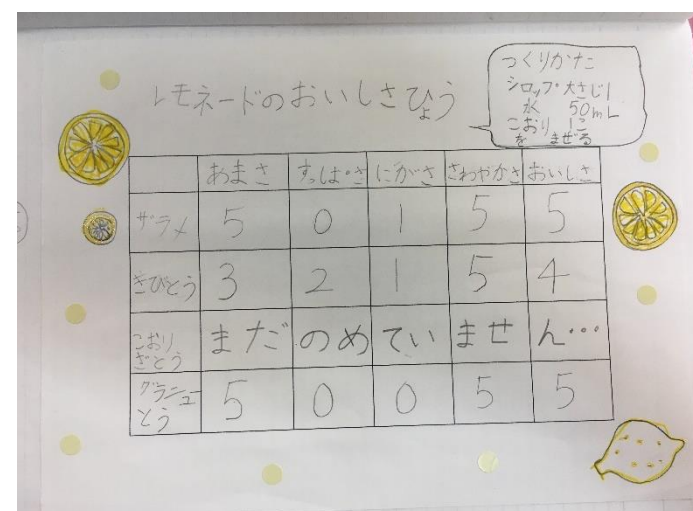 レモネードのおいしさひょう
つくりかた
シロップ・大さじ1
水 50mL
こおり 1こ
を まぜる
あまさ すっぱさ にがさ さわやかさ おいしさ
ザラメ 5 0 1 5 5
きびとう 3 2 1 5 4
こおりざとう まだのめていません…
グラニューとう 5 0 0 5 5